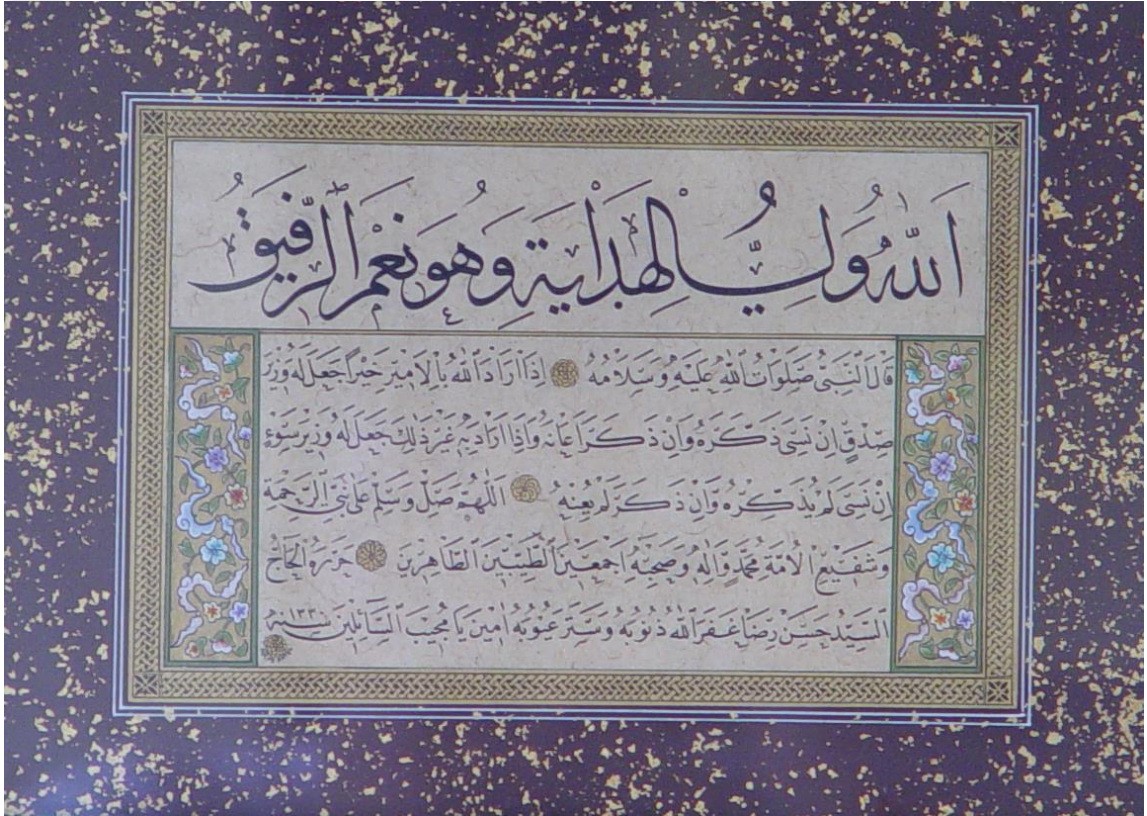 اَللّٰهُ وَلِيُّ الْهِدَايَةِ وَهُوَ نِعْمَ الرَّفِيقُ
قَالَ النَّبِيُّ صَلَوَاتُ اللّٰهِ عَلَيْهِ وَسَلَامُهُ اِذَا اَرَادَ اللّٰهُ بِالْاَمِيرِ خَيْرًا جَعَلَ لَهُ وَزِيرَ
صِدْقٍ اِنْ نَسِيَ ذَكَّرَهُ وَاِنْ ذَكَرَ اَعَانَهُ وَاِذَا اَرَادَ بِهِ غَيْرَ ذٰلِكَ جَعَلَ لَهُ وَزِيرَ سُوْءٍ
اِنْ نَسِيَ لَمْ يُذَكِّرْهُ وَاِنْ ذَكَرَ لَمْ يُعِنْهُ اَللّٰهُمَّ صَلِّ وَسَلِّمْ عَلٰى نَبِيِّ الرَّحْمَةِ
وَشَفِيعِ الْاُمَّةِ مُحَمَّدٍ وَاٰلِهِ وَصَحْبِهِ اَجْمَعِينَ الطَّيِّبِينَ الطَّاهِرِينَ حَرَّرَهُ الْحَاجُّ
السَّيِّدُ حَسَنْ رِضَا غَفَرَ اللّٰهُ ذُنُوبَهُ وَسَتَرَ عُيُوبَهُ اٰمِينَ يَا مُجِيبَ السَّائِلِينَ سنة ١٣٣٠